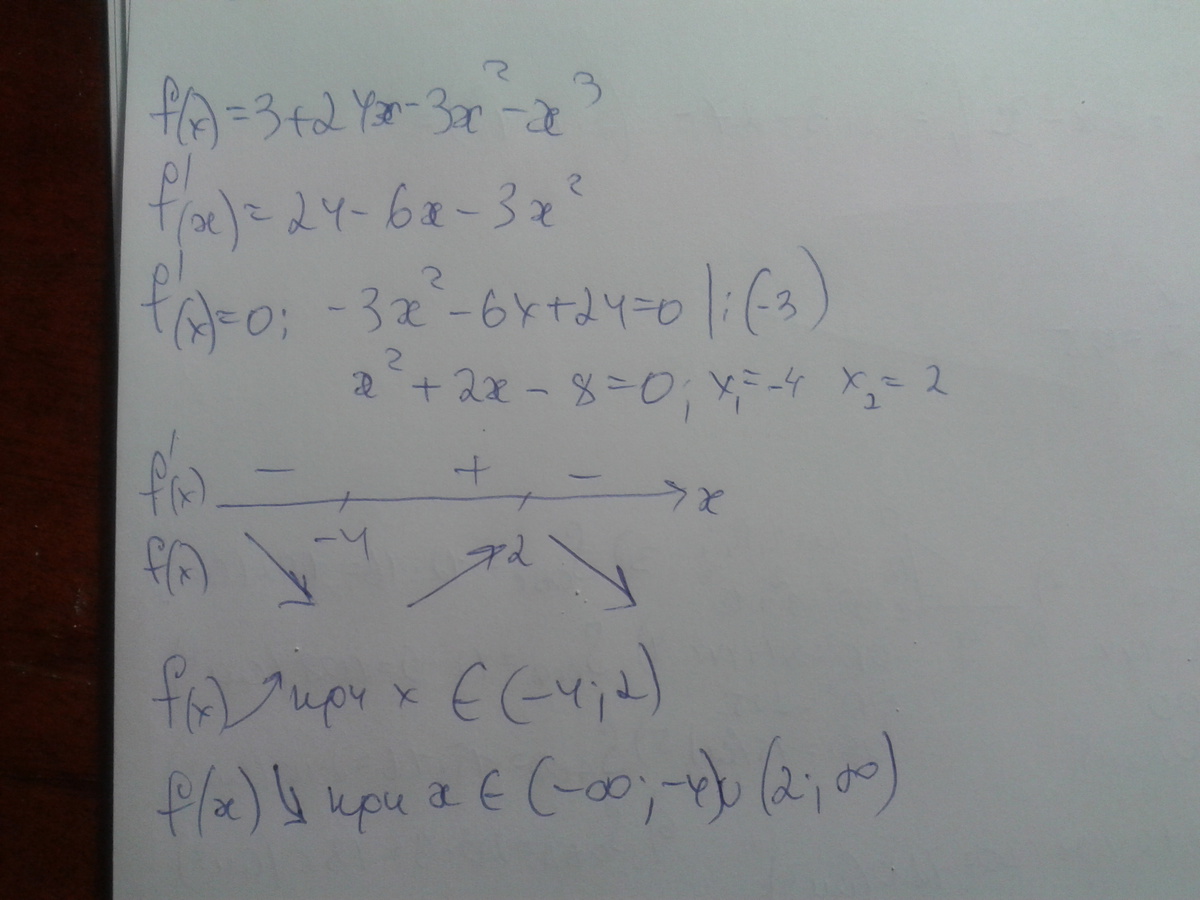 f(x)=3+24x-3x²-x³
f'(x)=24-6x-3x²
f'(x)=0; -3x²-6x+24=0 |:(-3)
x²+2x-8=0; x₁=-4 x₂=2
f'(x) - + - x
-4 2
f(x)
f(x)↗ при x ∈ (-4;2)
f(x)↘ при x ∈ (-∞;-4)∪(2;∞)